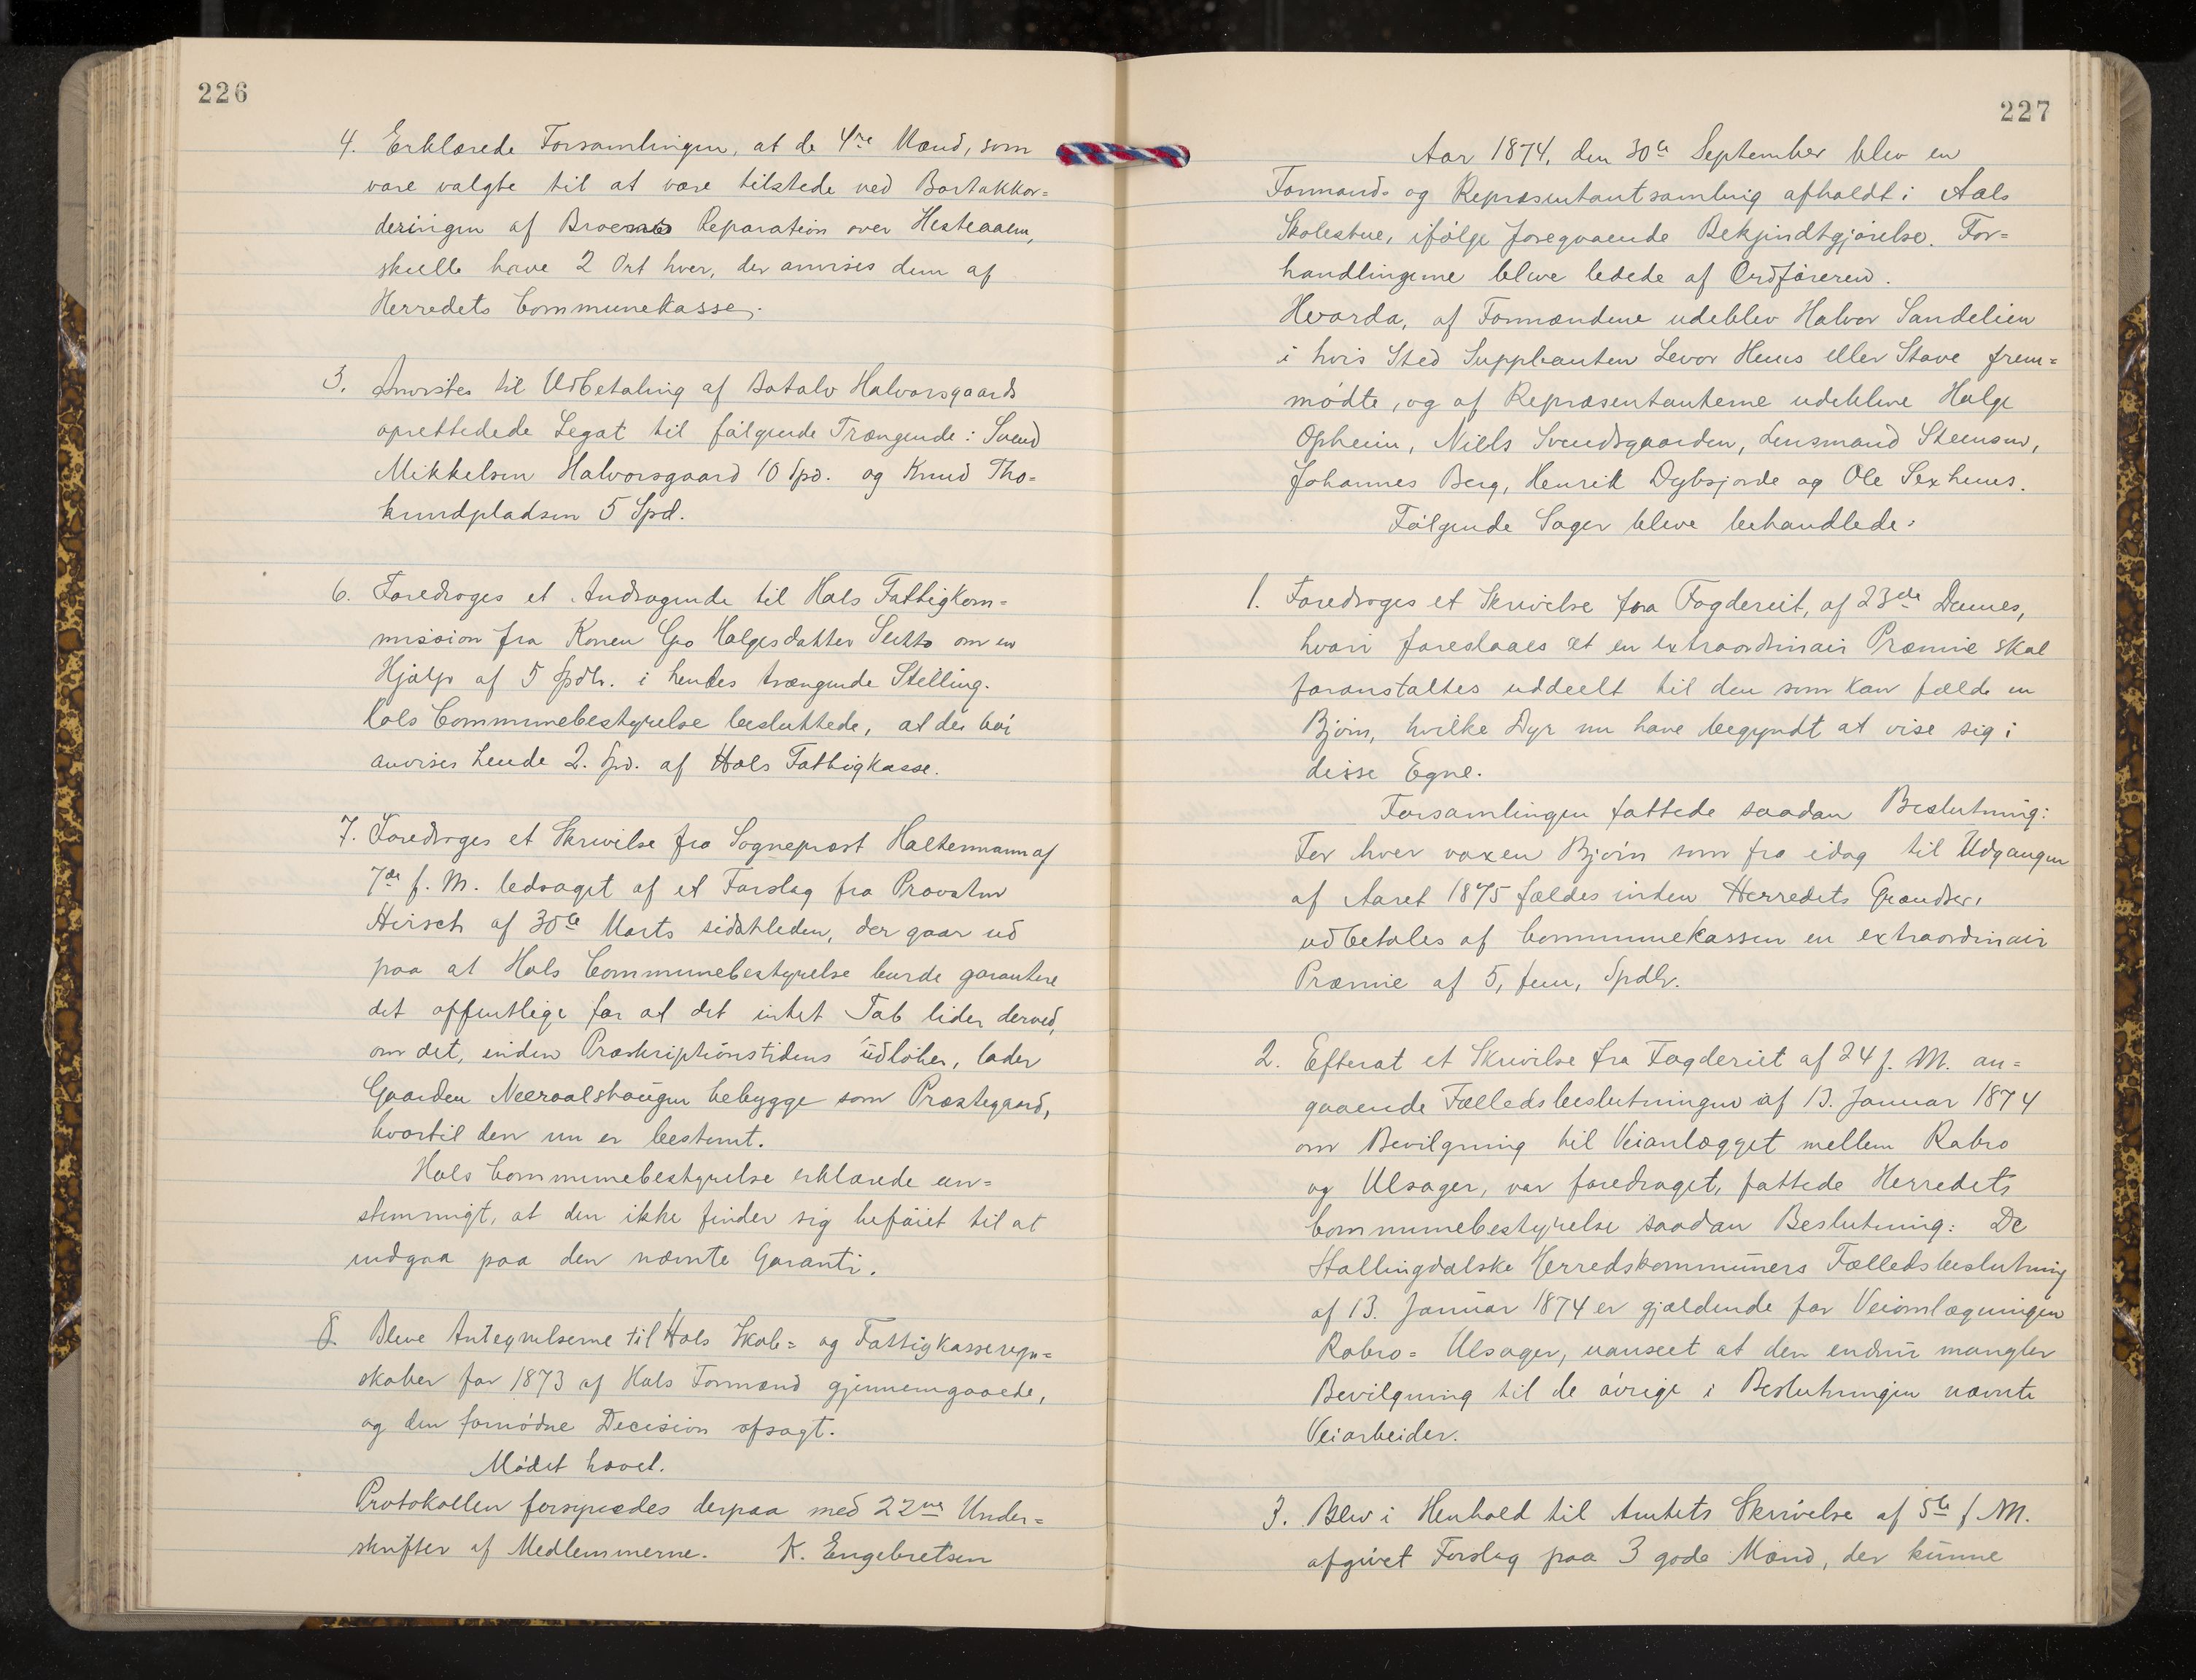 226
4. Erklærede Forsamlingen, at de 4re Mænd, som
vare valgte til at være tilstede ved Bortakkor=
deringen af Broernes Reparation over Hesteaaen,
skulle have 2 Ort hver, der anvises dem af
Herredets Communekasse.
5. Anvistes til Udbetaling af Botolv Halvorsgaards
oprettedede Legat til følgende Trængende: Svend
Mikkelsen Halvorsgaard 10 Spd. og Knud Tho=
kundpladsen 5 Spd.
6. Foredroges et Andragende til Hols Fattigkom=
mission fra Konen Gro Holgesdatter om en
Hjælp af 5 Spdlr. i hendes trængende Stilling.
Hols Communebestyrelse besluttede, at der bør
anvises hende 2. Spd. af Hols Fattigkasse.
7. Foredroges et Skrivelse fra Sogneprest Haltermann af
7de f. M. ledsaget af et Forslag fra Provsten
Hirsch af 30te Marts sidstleden, der gaar ud
paa at Hols Communebestyrelse burde garantere
det offentlige for at det intet Tab lider derved,
om det, inden Præskriptionstidens Udløber, lader
Gaarden Neeraalshaugen bebygge som Præstegaard,
hvortil den nu er bestemt.
Hols Communebestyrelse erklærede en=
stemmigt, at den ikke finder sig beføiet til at
indgaa paa den nævnte Garanti.
8. Bleve Antegnelserne til Hols Skole= og Fattigkasseregn=
skaber for 1873 af Hols Formænd gjennemgaaede,
og den fornødne Decision afsagt.
Mødet hævet.
Protokollen forsynedes derpaa med 22ve Under=
skrifter af Medlemmerne. K. Engebretsen
227
Aar 1874, den 30te September blev en
Formands og Repræsentantsamling afholdt i Aals
Skolestue, ifølge foregaaende Bekjendtgjørelse. For=
handlingerne bleve ledede af Ordføreren.
Hvorda, af Formændene udeblev Halvor Sandelien
i hvis Sted Suppleanten Levor Heus eller Stave frem=
mødte, og af Repræsentanterne udebleve Holge
Opheim, Niels Svendsgaarden, Lensmand Steensen,
Johannes Berg, Henrik Dybsjorde og Ole Sexhuus.
Følgende Sager bleve behandlede:
1. Foredroges et Skrivelse fra Fogderiet, af 23de Dennes,
hvori foreslaaes at en extraordinair Præmie skal
foranstaltes uddeelt til den som kan fælde en
Bjørn, hvilke Dyr nu have begyndt at vise sig i
disse Egne.
Forsamlingen fattede saadan Beslutning:
For hver voxen Bjørn som fra idag til Udgangen
af Aaret 1875 fældes inden Herredets Grændser,
udbetales af Communekassen en extraordinair
Præmie af 5, fem, Spdlr.
2. Efterat et Skrivelse fra Fogderiet af 24 f. M. an=
gaaende Fælledsbeslutningen af 13. Januar 1874
om Bevilgning til Veianlægget mellem Robro
og Ulsager, var foredraget, fattede Herredets
Communebestyrelse saadan Beslutning: De
Hallingdalske Herredskommuners Fælledsbeslutning
af 13. Januar 1874 er gjældende for Veiomlægningen
Robro = Ulsager, uanseet at den endnu mangler
Bevilgning til de øvrige i Beslutningen nævnte
Veiarbeider.
3. Blev i Henhold til Amtets Skrivelse af 5te f. M.
afgivet Forslag paa 3 gode Mænd, der kunne